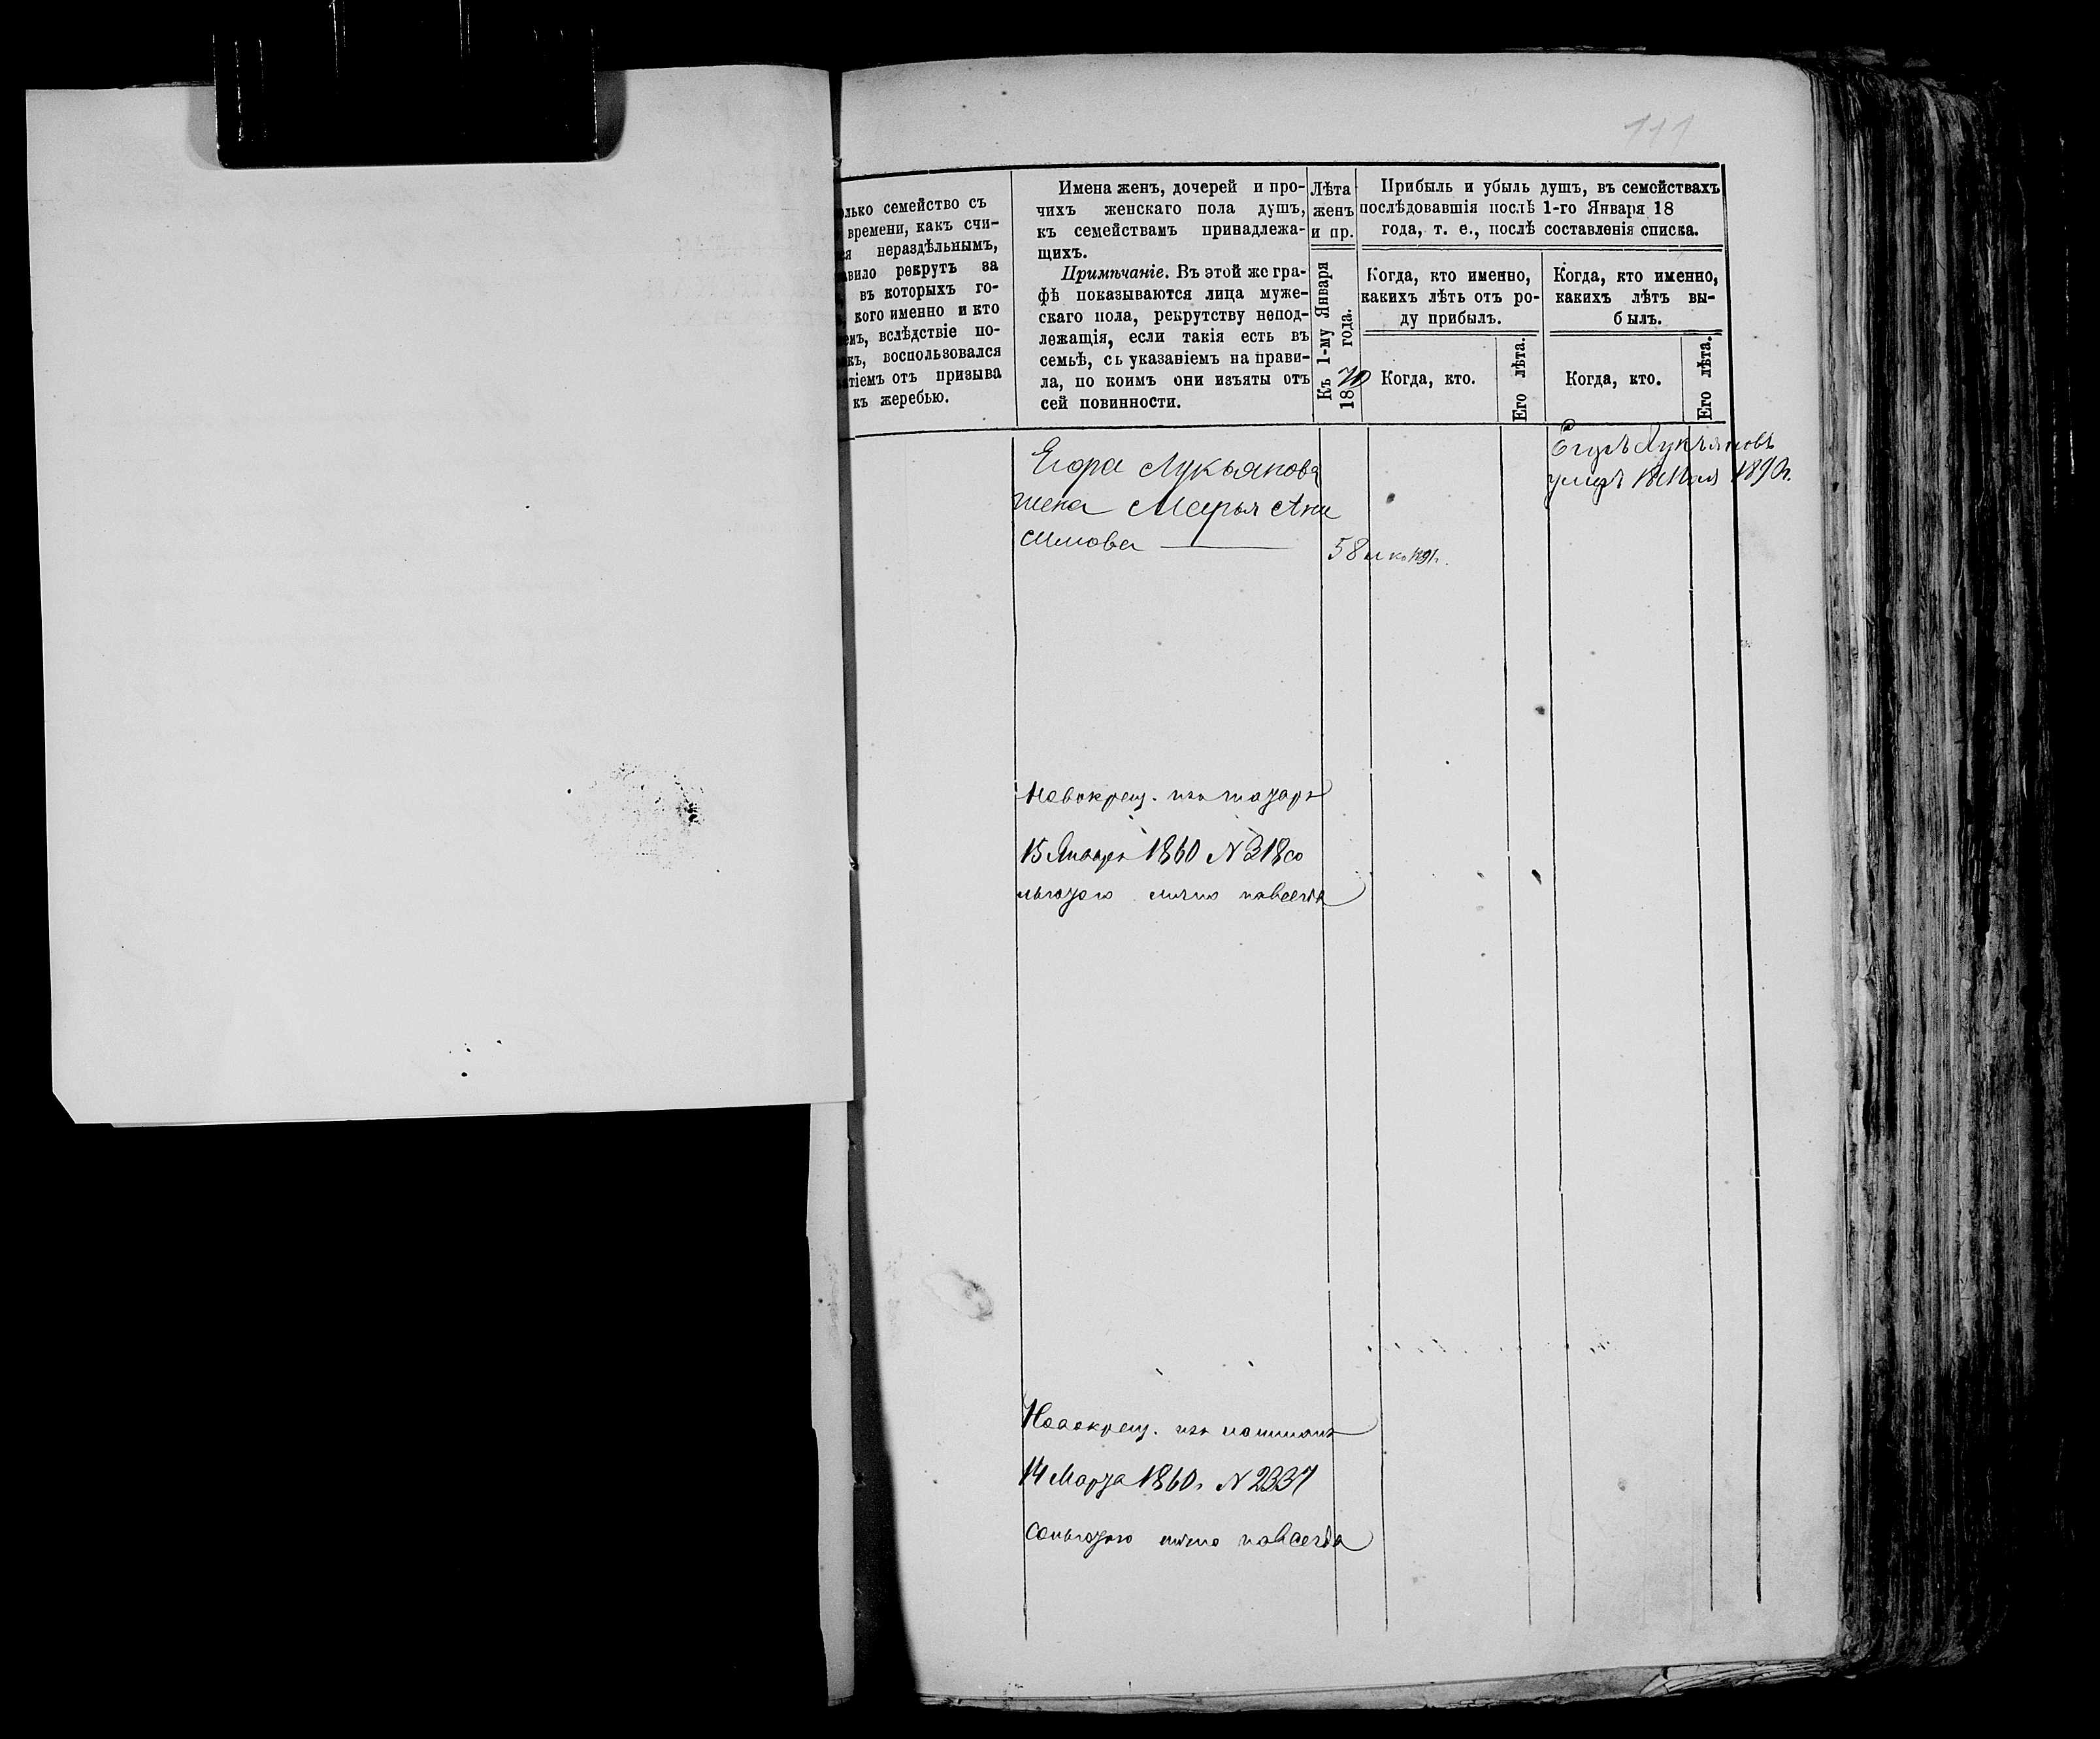 111
олько семейство съ
времени, какъ счи-
ся нераздѣльнымъ,
авило рекрутъ за
въ которыхъ го-
кого именно и кто
емъ, вслѣдствіе по-
къ, воспользовался
ятіемъ отъ призыва
къ жеребью.
Имена женъ, дочерей и про-
чихъ женскаго пола душъ,
къ семействамъ принадлежа-
щихъ.
Примѣчаніе. Въ этой же гра-
фѣ показываются лица муже-
скаго пола, рекрутству непод-
лежащія, если такія есть въ
семьѣ, съ указаніемъ на прави-
ла, по коимъ они изъяты отъ
сей повинности.
Лѣта
женъ
и пр.
Къ 1-му Января
1870 года.
Прибыль и убыль душъ, въ семействахъ
послѣдовавшія послѣ 1-го Января 18
года, т. е., послѣ составленія списка.
Когда, кто именно,
какихъ лѣтъ отъ ро-
ду прибылъ.
Когда, кто.
Его лѣта.
Когда, кто именно,
какихъ лѣтъ вы-
былъ.
Когда, кто.
Его лѣта.
Егора Лукьянова
жена Марья Ани
симова
58
Егоръ Лукьяновъ
умеръ 1890г.
Новокрещ. изъ татаръ
15 Января 1860 N 318 со
льготою лично навсегда
Новокрещ. изъ
14 Марта 1860. N 2337
со льготою лично навсегда